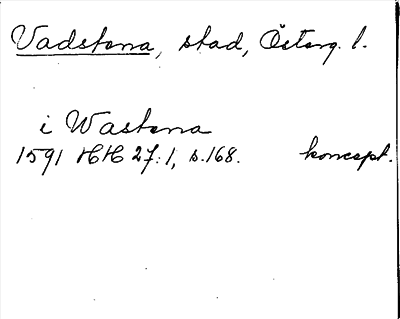 Vadstena, stad, Österg. l.
i Wastena
1591 HH 27:1, s. 168. koncept.